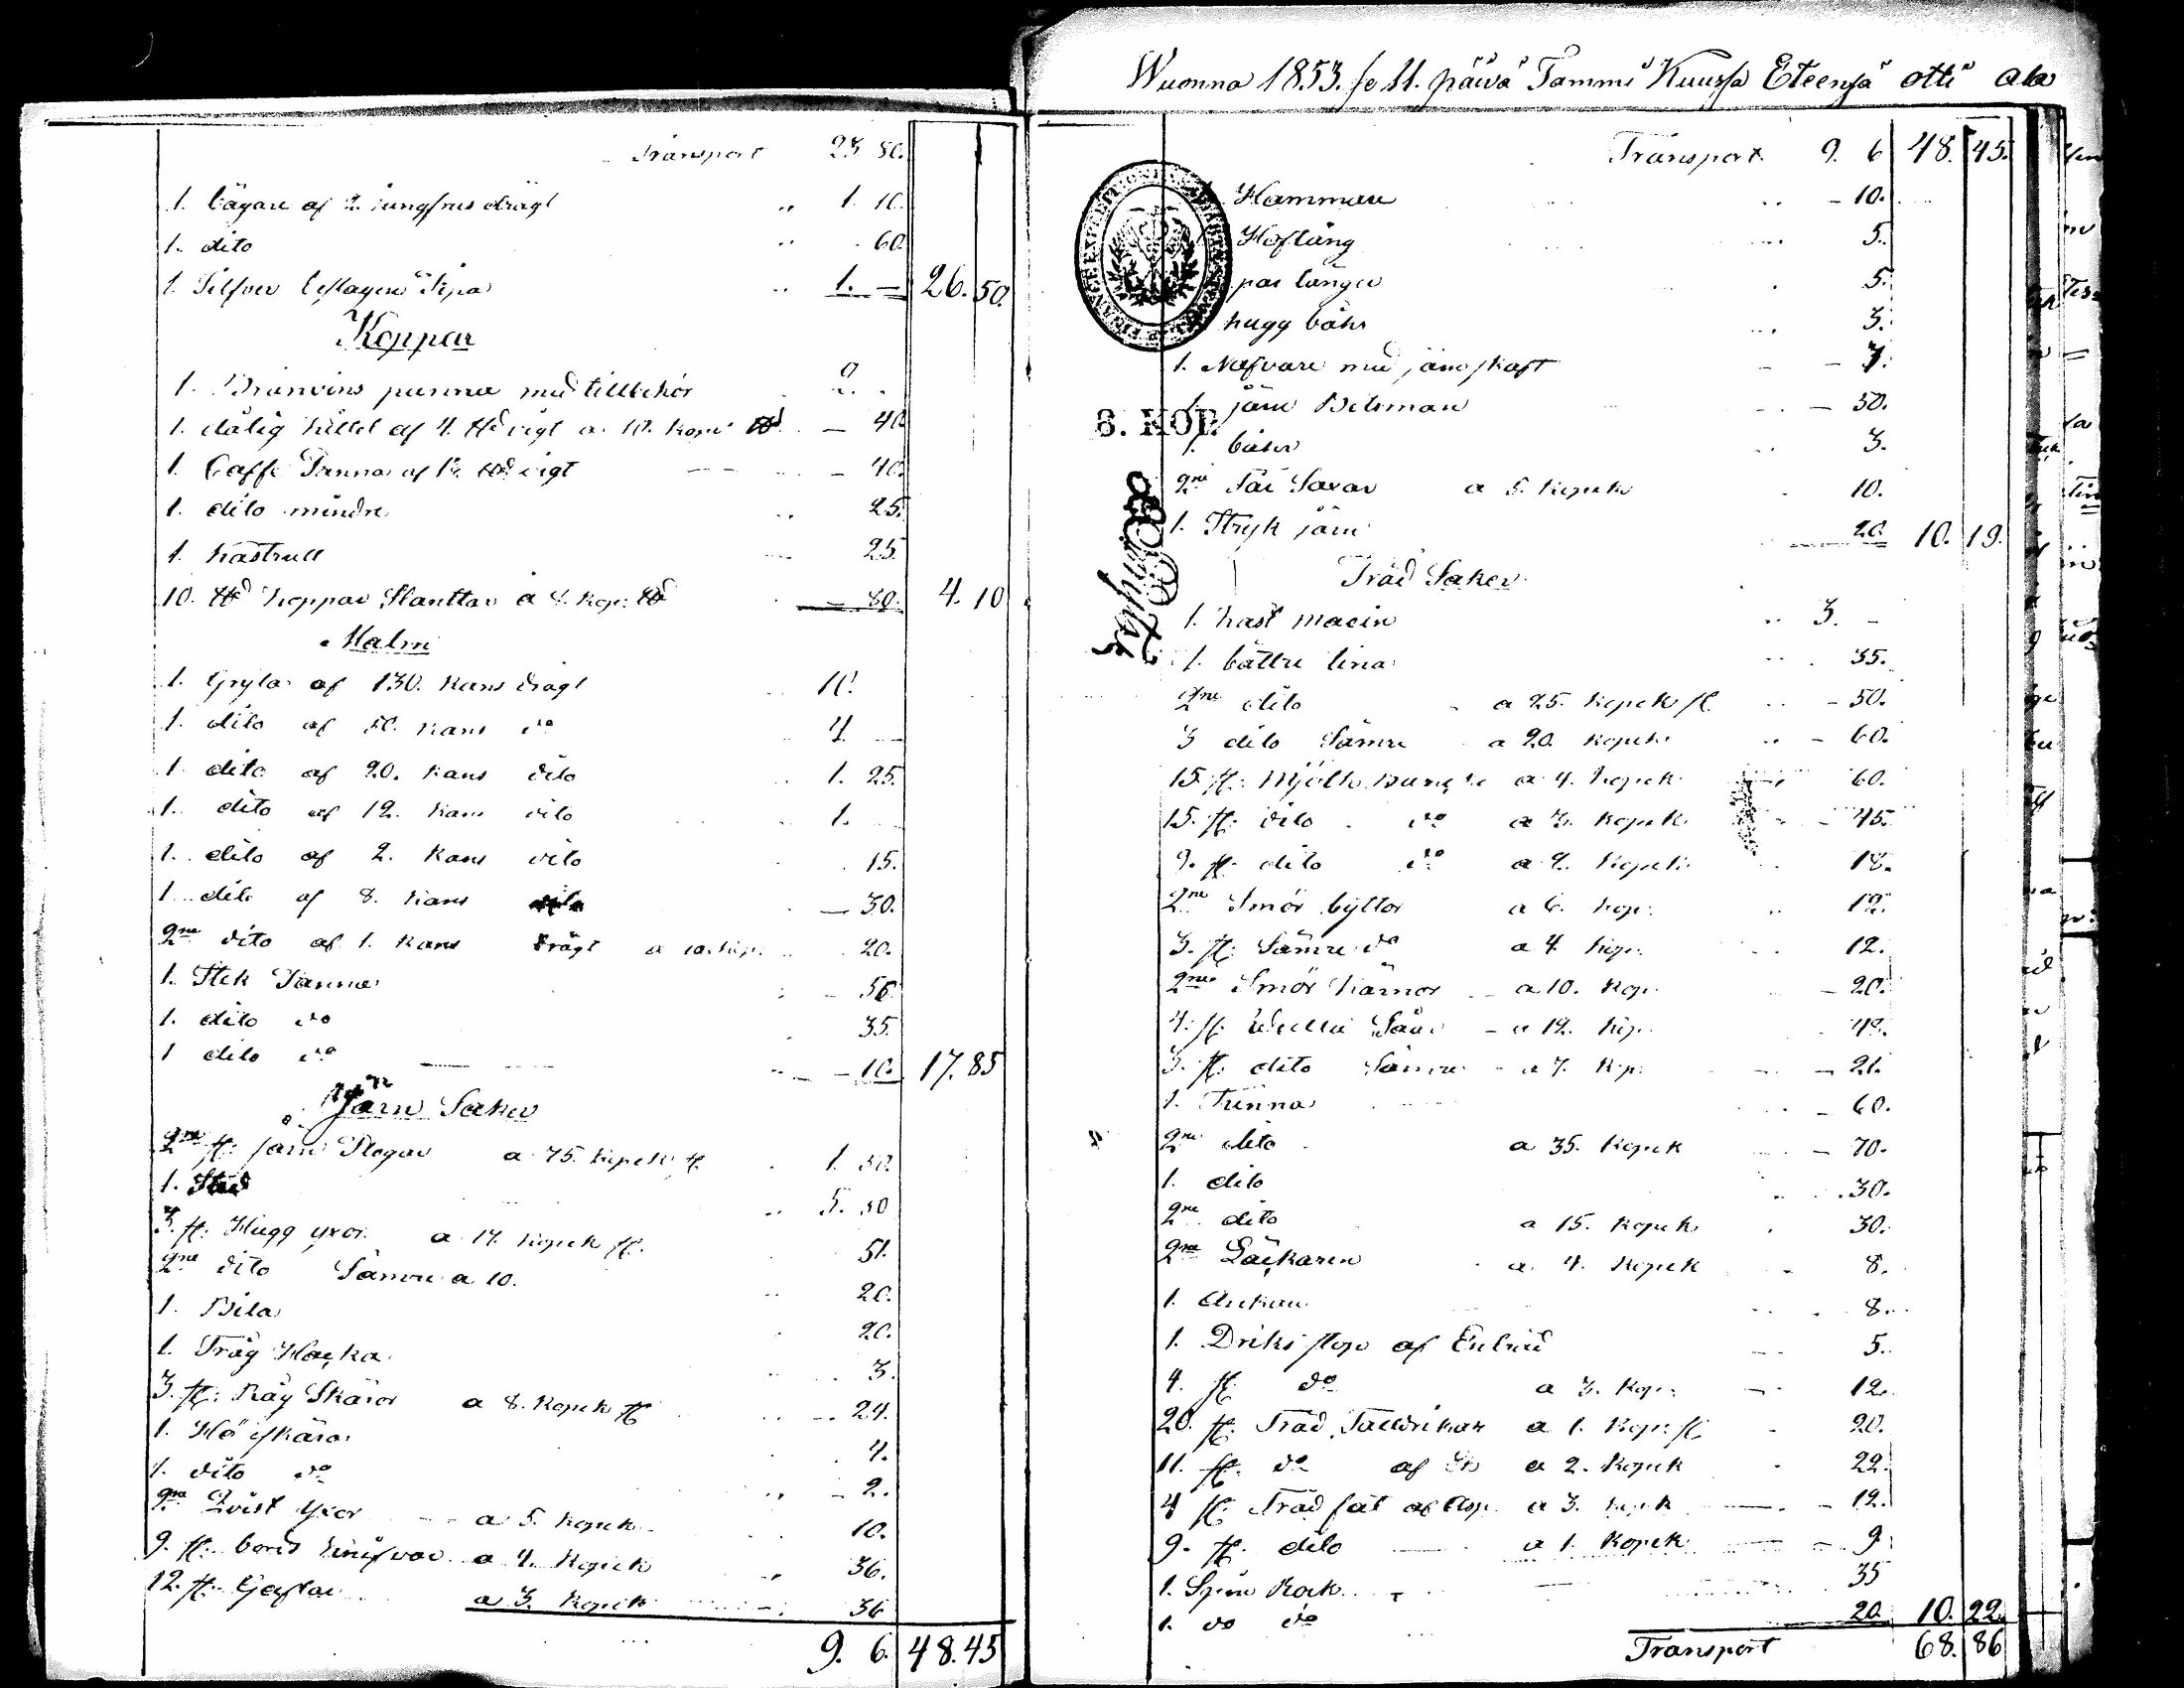 Transport 23 80.
1. bägare af 2. jungfrus drägt " 1. 10.
1. dito " 60.
1. Silfver beslagen Pipa " 1. — 26. 50.
Koppar
1. Bränvins panna med tillbehör 2. -
1. dålig kittel af 4. ℔ vigt a 10. kop. ℔ — 40.
1. Caffe Panna af ℔ vigt — 40.
1. dito mindre " 25.
1. Kastrull 25.
10. ℔ koppar Slanttar à 8. kop. ℔ — 80. 4. 10
Malm
1. Gryta af 130. kans drägt 10.
1. dito af 50. kans do 4. —
1. dito af 20. kans dito 1. 25.
1. dito af 12. kans dito 1. —
1. dito af 2. kans dito 15.
1. dito af 8. kans — 30.
2ne dito af 1. kans drägt a 10. kop. 20.
1. Stek Panna
1. dito do 35.
1 dito do — 10. 17. 85
Järn Saker
2ne st: järn Plogar a 75. kopek st. 1. 50.
1. Städ " 5. 50
3. st: Hugg yxor a 17. kopek st. 51.
2ne dito Sämre a 10. 20.
1. Bila 20.
1. Tråg Hacka 3.
3. st: Råg Skäror a 8. kopek st — 24.
1. Hö skära 4.
1. dito do — 2.
2ne Qvist yxor a 5. kopek 10.
9. st: bords knifvar a 4. kopek 36.
12. st: Gafflar a 3. kopek 36
9. 6. 48. 45
Wuonna 1853. se 11. päivä Tammi Kuussa Eteensä otti ala
Transport 9. 6 48. 45.
Hammare — 10.
Hoftång 5.
par tänger 5.
hugg båhr 3.
1. Nafvare med järn skaft — 7.
1. järn Betsman — 30.
8. KOP.
1. båhr 3.
2ne Får Saxar a 5. kopek 10.
1. Stryk järn 20. 10. 19.
Träd Saker
1. kast macin 3. -
1. bättre tina 35.
2ne dito a 25. kopek st. — 50.
3 dito Sämre a 20. kopek — 60.
15 st. Mjölk bunckar a 4. kopek 60.
15. st. dito do a 3. kopek — 45.
9. st. dito do a 2. kopek 18.
2ne Smör byttor a 6. kop. 12.
3. st: Sämre do a 4 kop. 12.
2ne Smör kärnor a 10. kop. — 20.
4. st. Såar a 12. kop. 48.
3. st. dito Sämre a 7. kop. — 21.
1. Tunna — 60.
2ne dito a 35. kopek — 70.
1. dito 30.
2ne dito a 15. kopek 30.
2ne a 4. kopek 8.
1. Ankare 8.
1. Driks stop af 5.
4. st. do a 3. kop. 12.
20. st. Träd Talldrikar a 1. kop. st. 20.
11. st. do af a 2. kopek 22.
4 st. Träd fat af Asp a 3. kopek — 12.
9. st. dito a 1. kopek — 9
1. Spin Rock 35
1. do do 20 10. 22.
Transport 68. 86